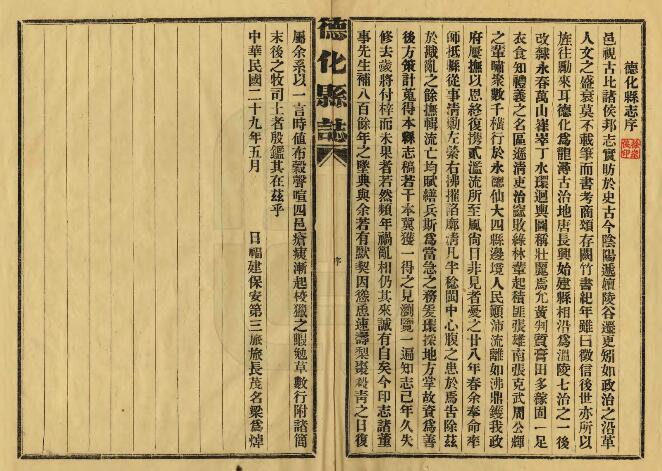 德化縣志序
邑視古比諸侯邦志實昉於史古今陰陽遞嬗陵谷遷更矧如政治之沿革
人文之盛衰莫不載筆而書考商頌存闕竹書紀年雖曰徵信後世亦所以
旌往勵來耳德化爲龍潯古治地唐長興始建縣相沿爲溫陵七治之一後
改隸永春萬山崔崒丁水環迴輿圖稱壯麗焉允黃判質膏田多稼固一足
衣食知禮義之名區遜清吏治窳敗綠林羣起積匪張雄南張克武周公輝
之輩嘯聚數千橫行於永德仙大四縣邊境人民顚沛流離如沸鼎鑊我政
府屢撫以恩終復携貳濫流所至風尙日非見者憂之廿八年春余奉命率
師柢縣從事清勦左縈右拂摧陷廓淸凡半稔閩中心腹之患於焉告除茲
於戡亂之餘撫輯流亡均賦繕兵斯爲當急之務爰環採地方掌故資爲善
後方策計蒐得本縣志稿若干本冀獲一得之見瀏覽一遍知志已年久失
修去歲將付梓而未果者若然頻年禍亂相仍其來誠有自矣今印志諸董
事先生補八百餘年之墜典與余若有默契因慫恿速壽梨棗殺靑之日復
德化縣誌
序
屬余系以一言時値布穀聲喧四邑瘡痍漸起梭獵之暇勉草數行附諸簡
末後之牧司土者殷鑑其在茲乎
中華民國二十九年五月　　日福建保安第三旅旅長茂名梁爲焯